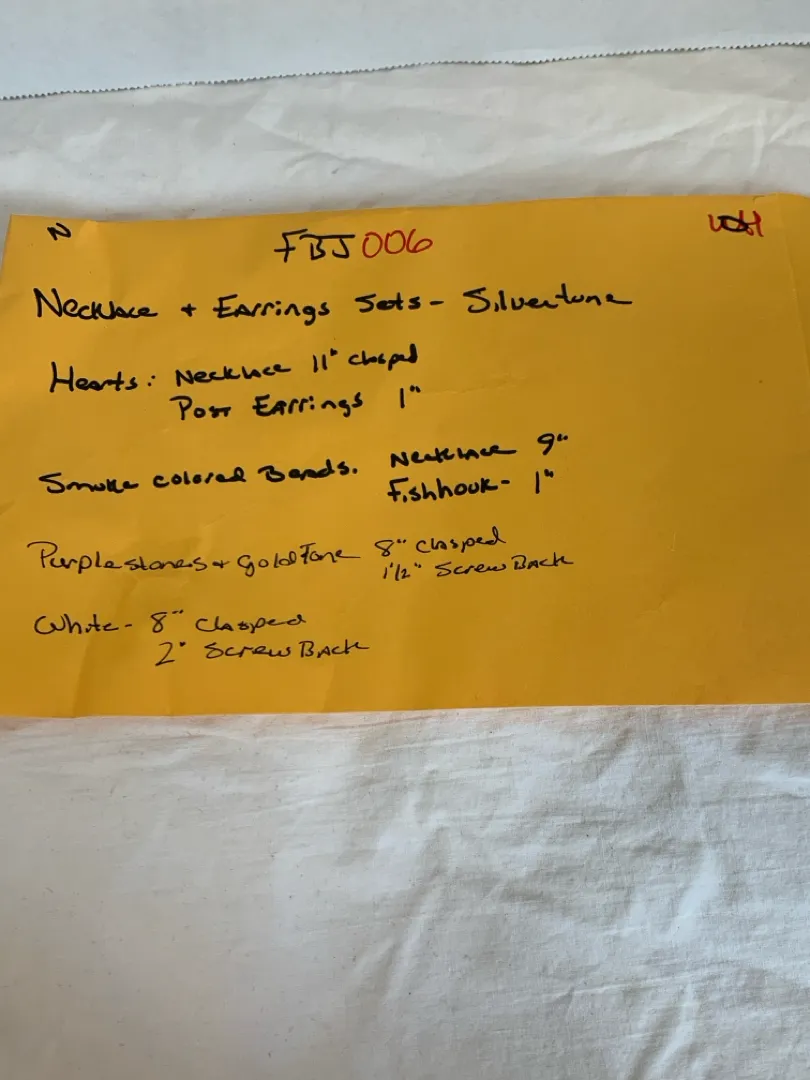 N
FBJ 006
Necklace + Earrings Sets - Silvertone
Hearts: Necklace 11" clasped
Post Earrings 1"
Smoke colored Beads. Necklace 9"
Fishhook - 1"
Purple stones + Gold Tone 8" Clasped
1 1/2" Screw Back
White - 8" Clasped
2" Screw Back